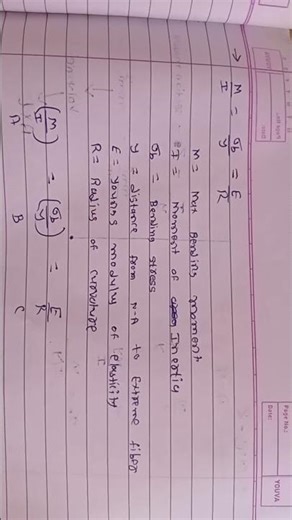 Page No.:
Date:
YOUVA
→ M/I = σb/y = E/R
M = Max Bending moment
I = Moment of Inertia
σb = Bending stress
y = distance from N-A to Extreme fiber
E = Youngs modulus of elasticity
R = Radius of curvature
(M/I) = (σb/y) = E/R
A B C